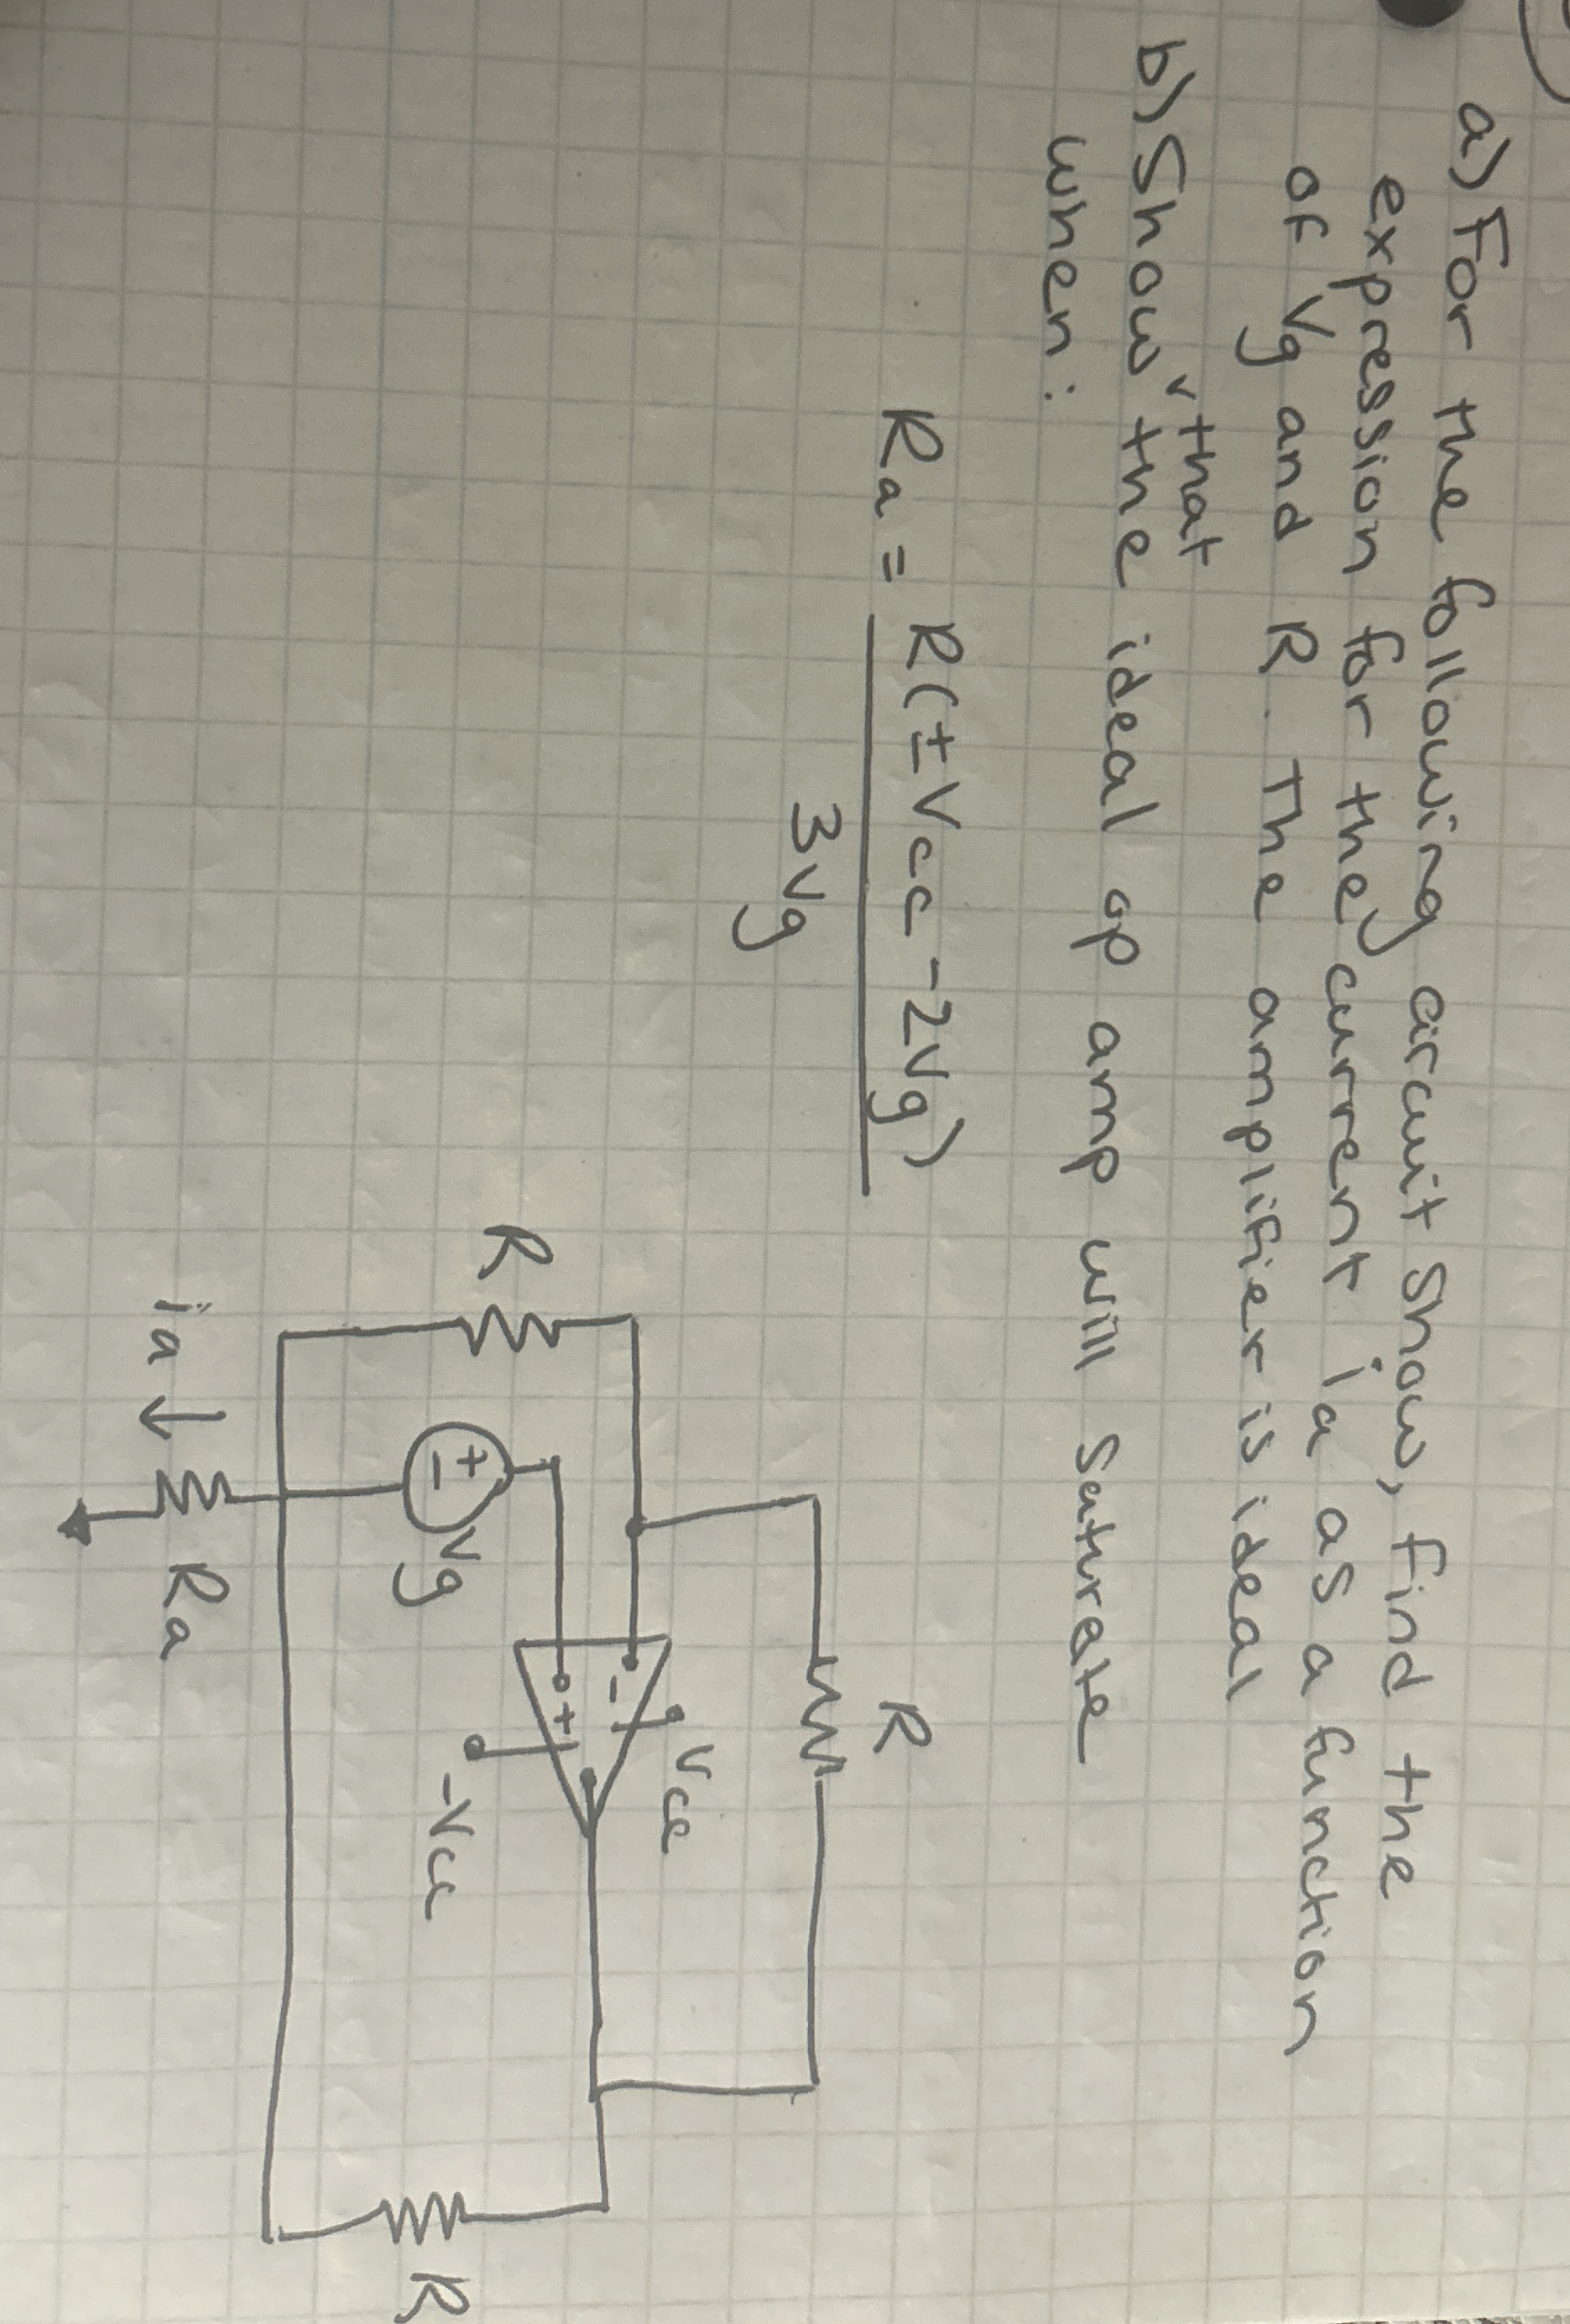 a) For the following circuit Show, find the
expression for they current ia as a function
of Vg and R. The amplifier is ideal
b) Show that the ideal op amp will saturate
when:
Ra = R(±Vcc -2Vg)
3Vg
R
Vcc
-
+
-Vcc
R
+
-
Vg
R
ia ↓
Ra